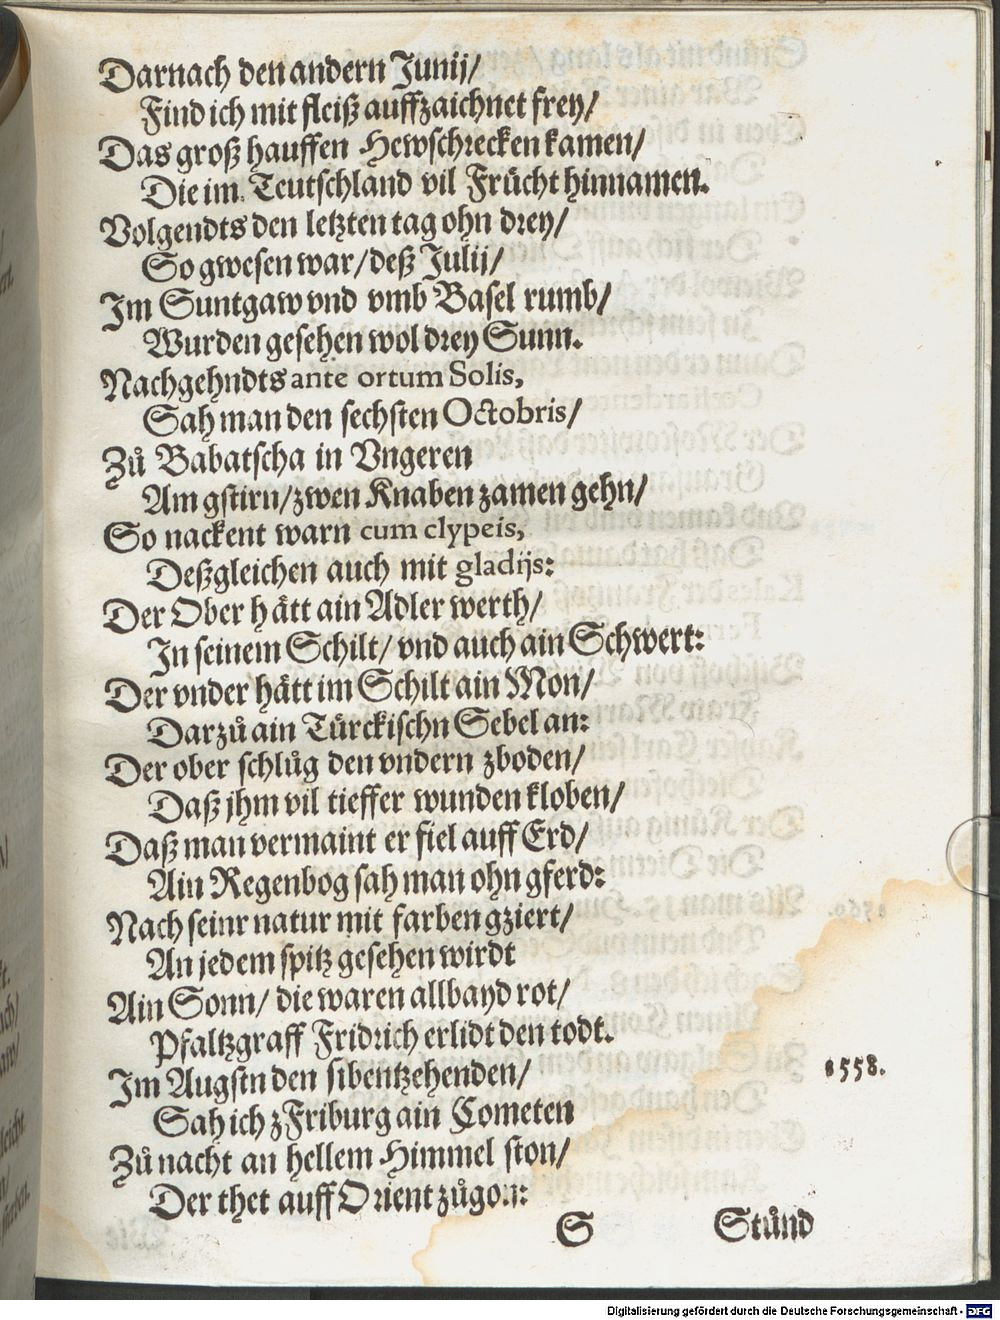 Darnach den andern Junij/
Find ich mit fleiß auffzaichnet frey/
Das groß hauffen Hewschrecken kamen/
Die im Teutschland vil Frücht hinnamen.
Volgendts den letzten tag ohn drey/
So gwesen war/deß Julij/
Im Suntgaw vnd vmb Basel rumb/
Wurden gesehen wol drey Sunn.
Nachgehndts ante ortum Solis,
Sah man den sechsten Octobris/
Zů Babatscha in Vngeren
Am gstirn/zwen Knaben zamen gehn/
So nackent warn cum clypeis,
Deßgleichen auch mit gladijs:
Der Ober hätt ain Adler werth/
In seinem Schilt/ vnd auch ain Schwert:
Der vnder hätt im Schilt ain Mon/
Darzů ain Türckischn Sebel an:
Der ober schlůg den vndern zboden/
Daß jhm vil tieffer wunden kloben/
Daß man vermaint er fiel auff Erd/
Ain Regenbog sah man ohn gferd:
Nach seinr natur mit farben gziert/
An jedem spitz gesehen wirdt
Ain Sonn/ die waren allbayd rot/
Pfaltzgraff Fridrich erlidt den todt.
Im Augstn den sibentzehenden/
1558.
Sah ich zFriburg ain Cometen
Zů nacht an hellem Himmel ston/
Der thet auff Orient zůgon:
S Stůnd
Digitalisierung gefördert durch die Deutsche Forschungsgemeinschaft - DFG